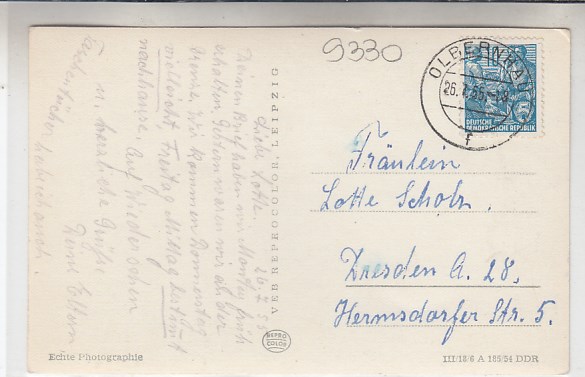 9330
OLBERNHAU
26.7.55.-18
f
DEUTSCHE
DEMOKRATISCHE REPUBLIK
26.7.55
Liebe Lotte.
Deinen Brief haben wir Montag früh
erhalten Gestern waren wir auf der
Wir kommen Donnerstag
vielleicht, Freitag Mittag bestimt
nachhause. Auf Wiedersehen
u. herzliche Grüße
Deine Eltern.
VEB REPROCOLOR, LEIPZIG
REPRO
COLOR
Fräulein
Lotte Scholz.
Dresden A. 28,
Hermsdorfer Str. 5.
Echte Photographie
III/18/6 A 155/54 DDR